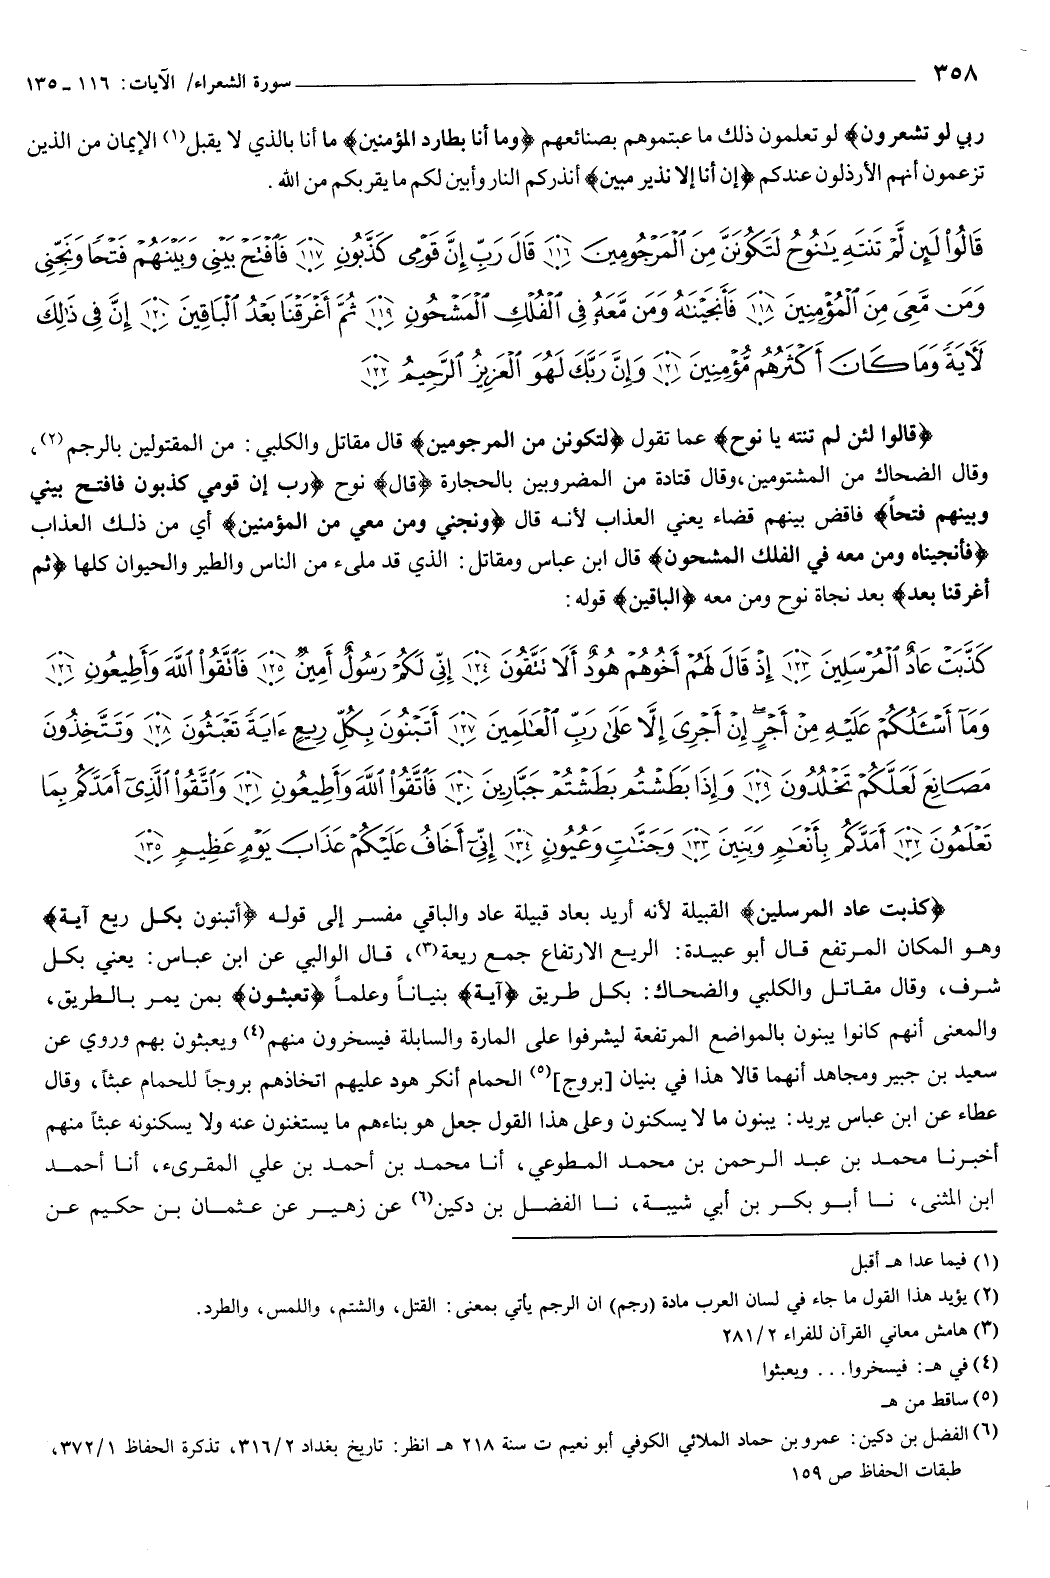 ٣٥٨ سورة الشعراء/ الآيات: ١١٦ - ١٣٥
ربي لو تشعرون﴾ لو تعلمون ذلك ما عبتموهم بصنائعهم ﴿وما أنا بطارد المؤمنين﴾ ما أنا بالذي لا يقبل(١) الإيمان من الذين
تزعمون أنهم الأرذلون عندكم ﴿إن أنا إلا نذير مبين﴾ أنذركم النار وأبين لكم ما يقربكم من الله .
قَالُوا۟ لَئِن لَّمْ تَنتَهِ يَـٰنُوحُ لَتَكُونَنَّ مِنَ ٱلْمَرْجُومِينَ ﴿١١٦﴾ قَالَ رَبِّ إِنَّ قَوْمِى كَذَّبُونِ ﴿١١٧﴾ فَٱفْتَحْ بَيْنِى وَبَيْنَهُمْ فَتْحًا وَنَجِّنِى
وَمَن مَّعِىَ مِنَ ٱلْمُؤْمِنِينَ ﴿١١٨﴾ فَأَنجَيْنَـٰهُ وَمَن مَّعَهُۥ فِى ٱلْفُلْكِ ٱلْمَشْحُونِ ﴿١١٩﴾ ثُمَّ أَغْرَقْنَا بَعْدُ ٱلْبَاقِينَ ﴿١٢٠﴾ إِنَّ فِى ذَٰلِكَ
لَـَٔايَةً وَمَا كَانَ أَكْثَرُهُم مُّؤْمِنِينَ ﴿١٢١﴾ وَإِنَّ رَبَّكَ لَهُوَ ٱلْعَزِيزُ ٱلرَّحِيمُ ﴿١٢٢﴾
﴿قالوا لئن لم تنته يا نوح﴾ عما تقول ﴿لتكونن من المرجومين﴾ قال مقاتل والكلبي: من المقتولين بالرجم(٢)،
وقال الضحاك من المشتومين،وقال قتادة من المضروبين بالحجارة ﴿قال﴾ نوح ﴿رب إن قومي كذبون فافتح بيني
وبينهم فتحاً﴾ فاقض بينهم قضاء يعني العذاب لأنه قال ﴿ونجني ومن معي من المؤمنين﴾ أي من ذلك العذاب
﴿فأنجيناه ومن معه في الفلك المشحون﴾ قال ابن عباس ومقاتل: الذي قد ملىء من الناس والطير والحيوان كلها ﴿ثم
أغرقنا بعد﴾ بعد نجاة نوح ومن معه ﴿الباقين﴾ قوله:
كَذَّبَتْ عَادٌ ٱلْمُرْسَلِينَ ﴿١٢٣﴾ إِذْ قَالَ لَهُمْ أَخُوهُمْ هُودٌ أَلَا تَتَّقُونَ ﴿١٢٤﴾ إِنِّى لَكُمْ رَسُولٌ أَمِينٌ ﴿١٢٥﴾ فَٱتَّقُوا۟ ٱللَّهَ وَأَطِيعُونِ ﴿١٢٦﴾
وَمَآ أَسْـَٔلُكُمْ عَلَيْهِ مِنْ أَجْرٍ ۖ إِنْ أَجْرِىَ إِلَّا عَلَىٰ رَبِّ ٱلْعَـٰلَمِينَ ﴿١٢٧﴾ أَتَبْنُونَ بِكُلِّ رِيعٍ ءَايَةً تَعْبَثُونَ ﴿١٢٨﴾ وَتَتَّخِذُونَ
مَصَانِعَ لَعَلَّكُمْ تَخْلُدُونَ ﴿١٢٩﴾ وَإِذَا بَطَشْتُم بَطَشْتُمْ جَبَّارِينَ ﴿١٣٠﴾ فَٱتَّقُوا۟ ٱللَّهَ وَأَطِيعُونِ ﴿١٣١﴾ وَٱتَّقُوا۟ ٱلَّذِىٓ أَمَدَّكُم بِمَا
تَعْلَمُونَ ﴿١٣٢﴾ أَمَدَّكُم بِأَنْعَـٰمٍ وَبَنِينَ ﴿١٣٣﴾ وَجَنَّـٰتٍ وَعُيُونٍ ﴿١٣٤﴾ إِنِّىٓ أَخَافُ عَلَيْكُمْ عَذَابَ يَوْمٍ عَظِيمٍ ﴿١٣٥﴾
﴿كذبت عاد المرسلين﴾ القبيلة لأنه أريد بعاد قبيلة عاد والباقي مفسر إلى قوله ﴿أتبنون بكل ريع آية﴾
وهو المكان المرتفع قال أبو عبيدة: الريع الارتفاع جمع ريعة(٣)، قال الوالبي عن ابن عباس: يعني بكل
شرف، وقال مقاتل والكلبي والضحاك: بكل طريق ﴿آية﴾ بنياناً وعلماً ﴿تعبثون﴾ بمن يمر بالطريق،
والمعنى أنهم كانوا يبنون بالمواضع المرتفعة ليشرفوا على المارة والسابلة فيسخرون منهم(٤) ويعبثون بهم وروي عن
سعيد بن جبير ومجاهد أنهما قالا هذا في بنيان [بروج](٥) الحمام أنكر هود عليهم اتخاذهم بروجاً للحمام عبثاً، وقال
عطاء عن ابن عباس يريد: يبنون ما لا يسكنون وعلى هذا القول جعل هو بناءهم ما يستغنون عنه ولا يسكنونه عبثاً منهم
أخبرنا محمد بن عبد الرحمن بن محمد المطوعي، أنا محمد بن أحمد بن علي المقرىء، أنا أحمد
ابن المثنى، نا أبو بكر بن أبي شيبة، نا الفضل بن دكين(٦) عن زهير عن عثمان بن حكيم عن
(١) فيما عدا هـ أقبل
(٢) يؤيد هذا القول ما جاء في لسان العرب مادة (رجم) ان الرجم يأتي بمعنى: القتل، والشتم، واللمس، والطرد.
(٣) هامش معاني القرآن للفراء ٢٨١/٢
(٤) في هـ: فيسخروا... ويعبثوا
(٥) ساقط من هـ
(٦) الفضل بن دكين: عمرو بن حماد الملائي الكوفي أبو نعيم ت سنة ٢١٨ هـ انظر: تاريخ بغداد ٣١٦/٢، تذكرة الحفاظ ٣٧٢/١،
طبقات الحفاظ ص ١٥٩